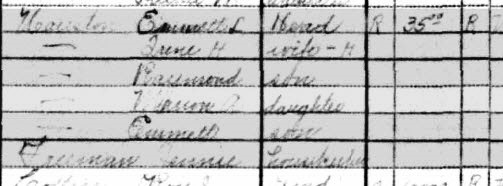 Houston Emmett S Head R 35.00 R
— June H wife - H
— Raymond son
— Marion A daughter
— Emmett son
Freeman Jennie housekeeper
Head R